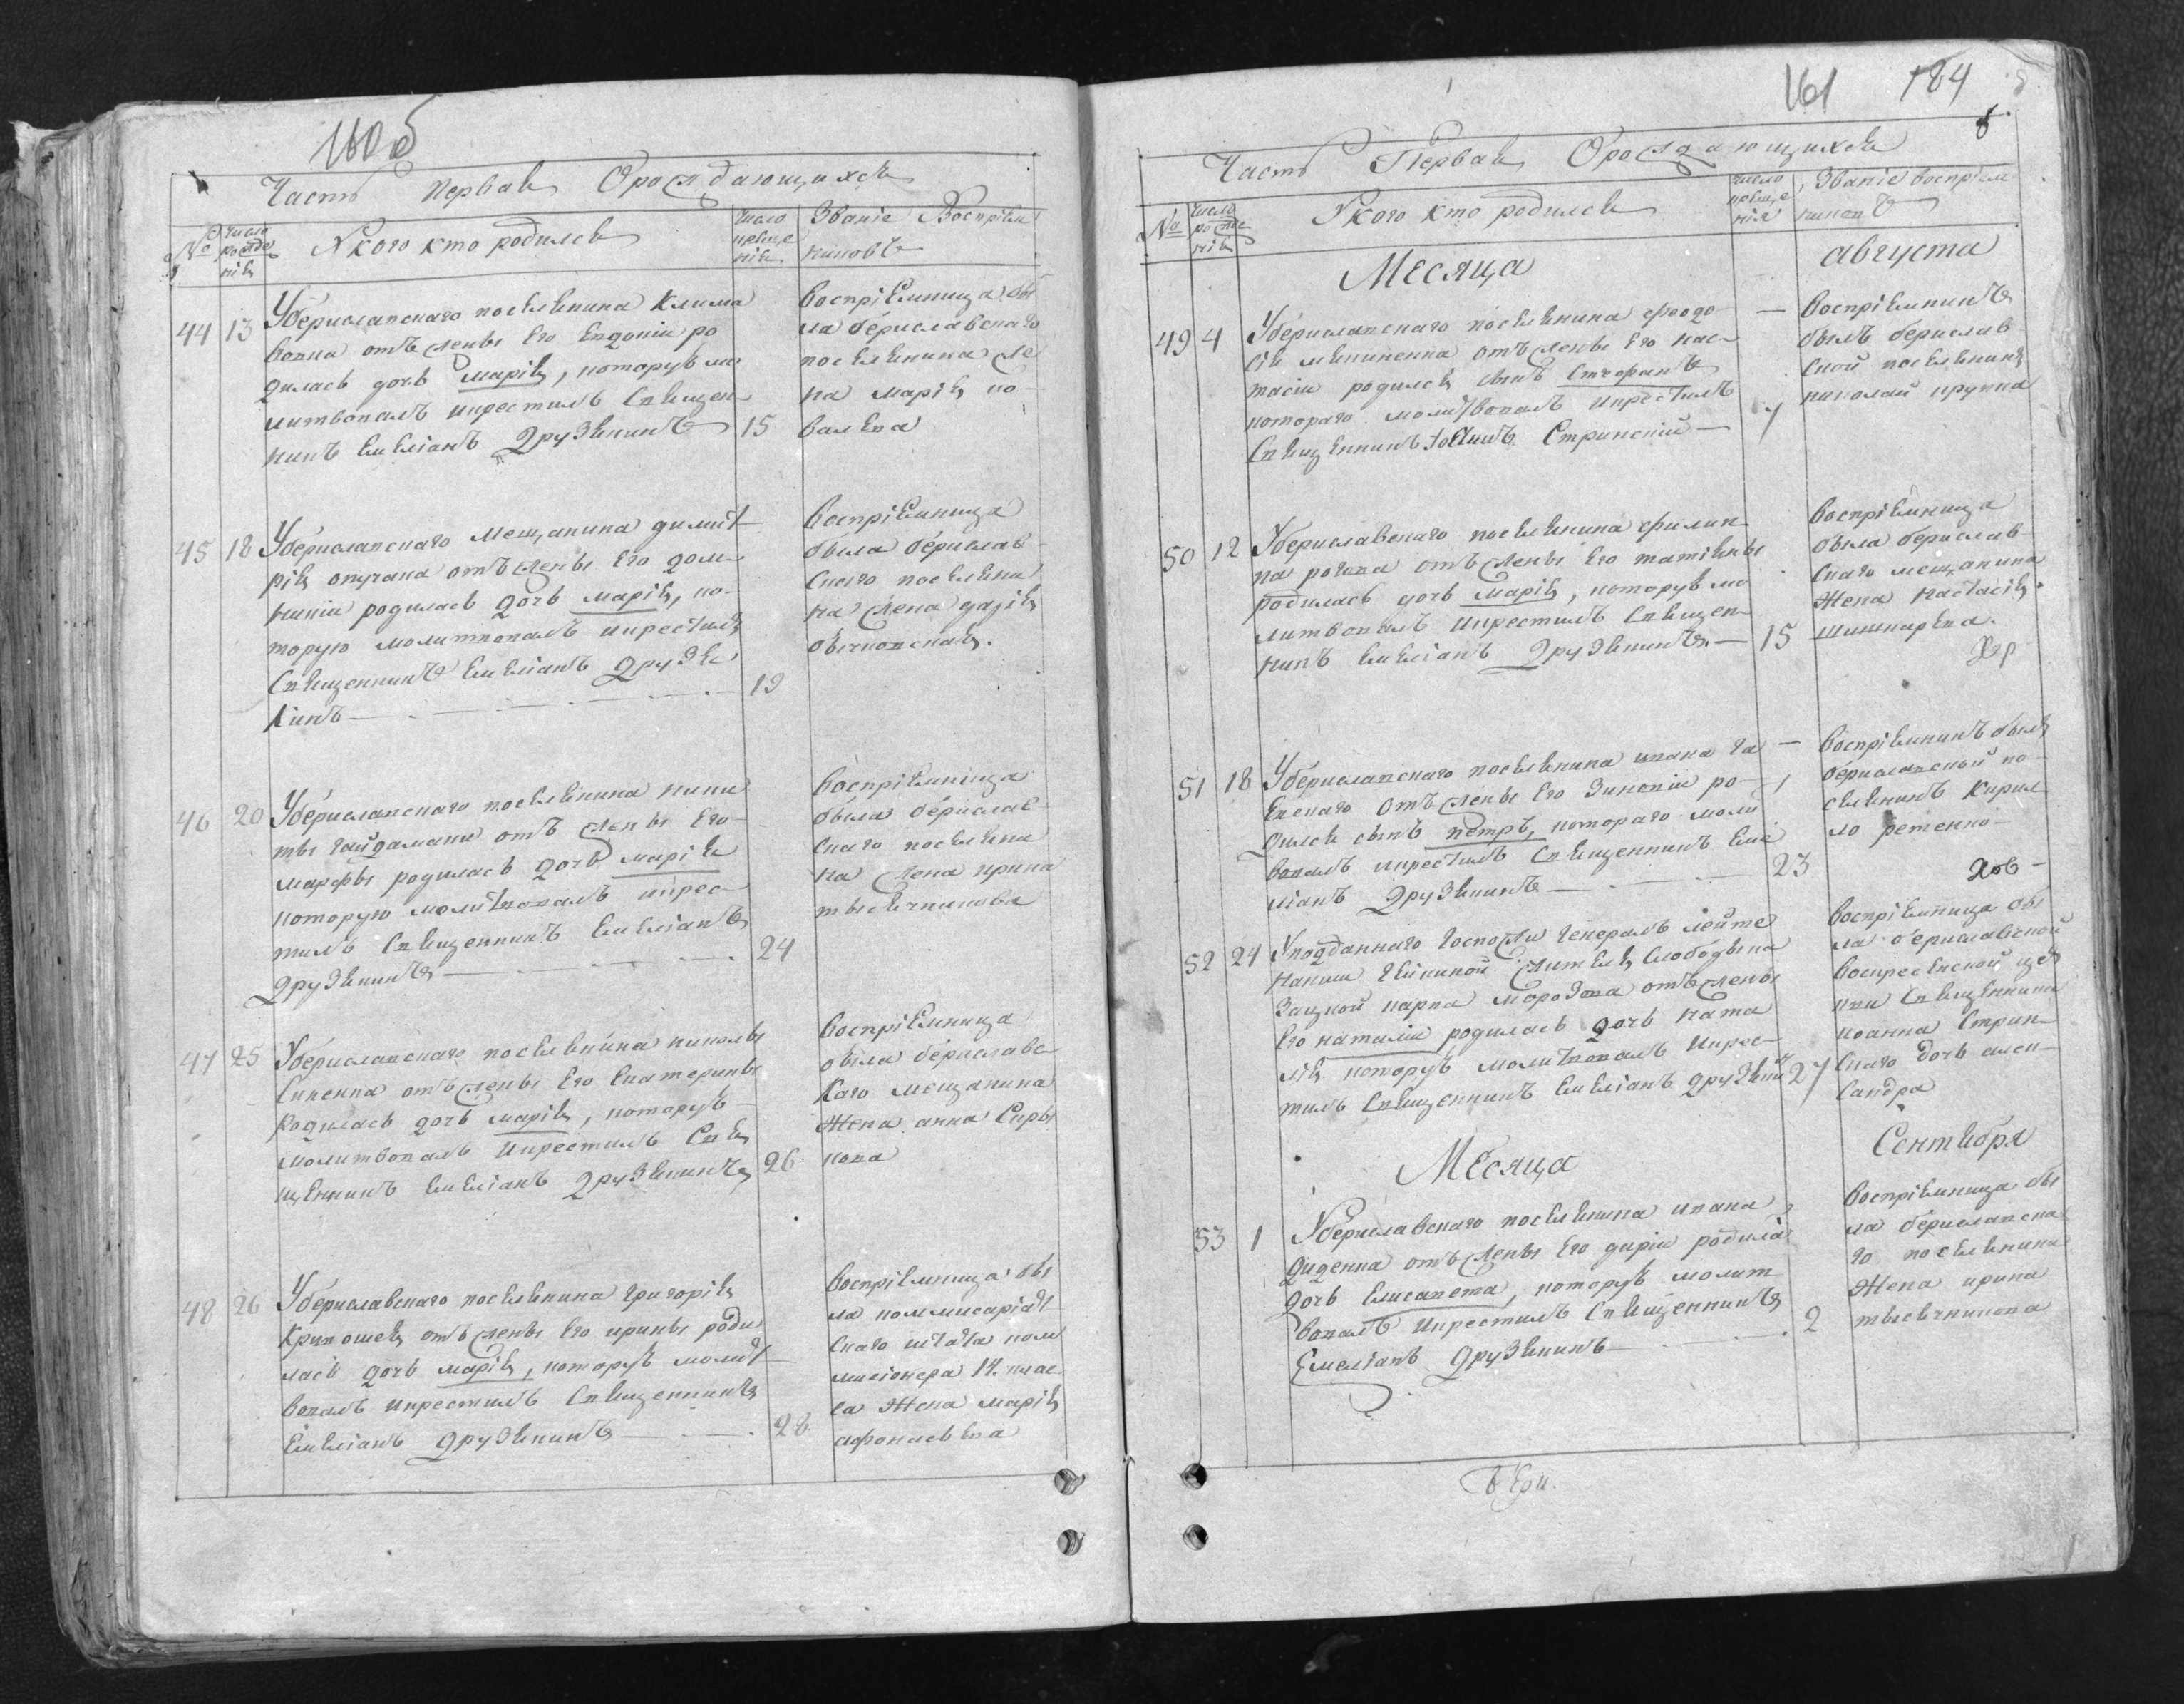 160 об
Часть Первая О рождающихся
№ число рожде нія
У кого кто родился
число крѣще нія
Званіе Воспріем никовъ
44 13 У бериславскаго поселянина Клима
вовка отъ жены Его Евдокіи ро
дилась дочь марія, которую мо
литвовалъ икрестилъ Священ
никъ Емеліанъ Друзякинъ 15
воспріемница бы
ла бериславскаго
поселянина же
на марія ко
валева
45 18 У бериславскаго мещанина димит
рія отъ жены Его дом
никіи родилась дочь марія, ко
торую молитвовалъ икрестилъ
Священникъ Емеліанъ Друзя
кинъ 19
воспріемница
была берислав
скаго поселяни
на жена
46 20 У бериславскаго поселянина ники
ты гайдамаки отъ жены Его
марфы родилась дочь марія
которую молитвовалъ икрес
тилъ Священникъ Емеліанъ
друзякинъ 24
воспріемница
была берислав
скаго поселяни
на жена ирина
тысячникова
47 25 У бериславскаго поселянина николы
отъ жены Его Екатерины
родилась дочь марія, которую
молитвовалъ Икрестилъ Свя
щенникъ Емеліанъ Друзякинъ 26
воспріемница
была бериславс
каго мещанина
Жена анна Сиры
кова
48 26 У бериславскаго поселянина григорія
Кривошея отъ жены Его ирины роди
лась дочь марія, которую молит
вовалъ икрестилъ Священникъ
Емеліанъ друзякинъ 28
воспріемница бы
ла коммисаріат
скаго штата ком
мисіонера 14. клас
са Жена марія
афонасьева
161 184
Часть Первая О рождающихся
№ число рожде нія
У кого кто родился
число крѣще нія
Званіе воспріем никовъ
Месяца августа
49 4 У бериславскаго поселянина феодо
сія отъ жены Его нас
тасіи родился сынъ Стефанъ
котораго молитвовалъ икрестилъ
Священникъ Іоаннъ Стринскій 7
воспріемникъ
былъ берислав
ской поселянинъ
николай крупка
50 12 У бериславскаго поселянина филип
па отъ жены Его татіяны
родилась дочь марія, которую мо
литвовалъ икрестилъ Священ
никъ Емеліанъ Друзякинъ 15
воспріемница
была берислав
скаго мещанина
Жена настасія
шишкарева.
51 18 У бериславскаго поселянина ивана га
евскаго отъ жены Его Зиновіи ро
дился сынъ петръ, котораго молит
вовалъ икрестилъ Священникъ Еме
ліанъ Друзякинъ 23
воспріемникъ былъ
бериславской по
селянинъ Кирил
ло
52 24 У подданнаго госпожи генералъ лейте
нанши жителя слободы ка
зацкой карпа морозова отъ жены
Его наталіи родилась дочь ната
лія которую молитвовалъ Икрес
тилъ Священникъ Емеліанъ друзякинъ 27
воспріемница бы
ла бериславской
воскресенской цер
кви Священника
иоанна Стрин
скаго дочь алек
сандра
Месяца Сентября
53 1 У бериславскаго поселянина ивана
диденка отъ жены Его даріи родила
дочь Елисавета, которую молит
вовалъ Икрестилъ Священникъ
Емеліанъ Друзякинъ 2
воспріемница бы
ла бериславска
го поселянина
Жена ирина
тысячникова